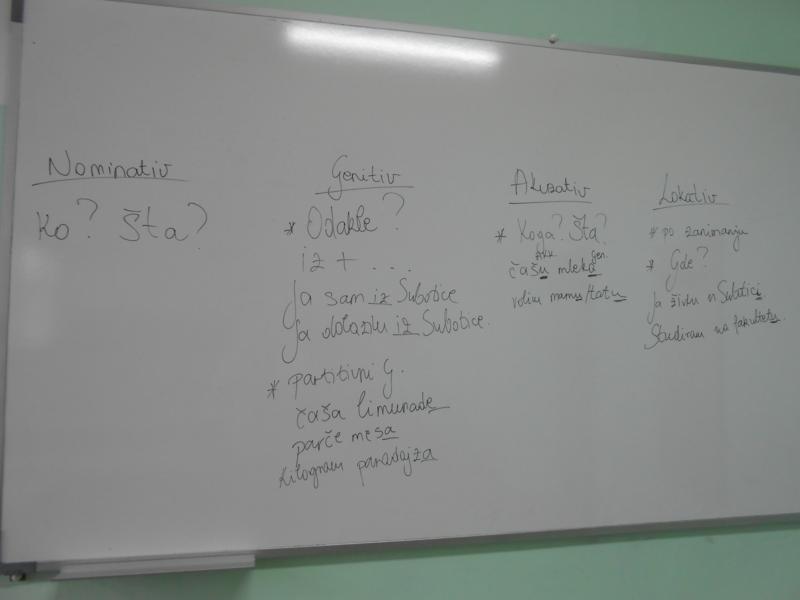 Nominativ
Ko? Šta?
Genitiv
* Odakle?
iz + ...
Ja sam iz Subotice
Ja dolazim iz Subotice.
* partitivni G.
čaša limunade
parče mesa
kilogram paradajza
Akuzativ
* Koga? Šta?
Akk. gen.
čašu mleka
volim mamu/tatu
Lokativ
* po zanimanju
* Gde?
Ja živim u Subotici
Studiram na fakultetu.